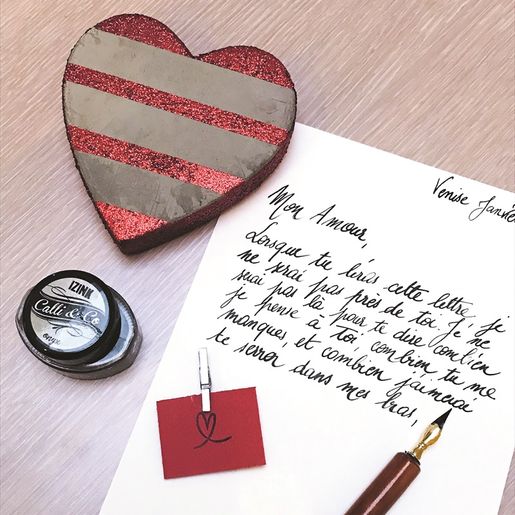 Venise Janvie
Mon Amour,
Lorsque tu liras cette lettre, je
ne serai pas près de toi. Je ne
serai pas là pour te dire combien
je pense à Toi, combien tu me
manques, et combien j'aimerai
te serrer dans mes bras,
IZINK
Calli & Co
onyx